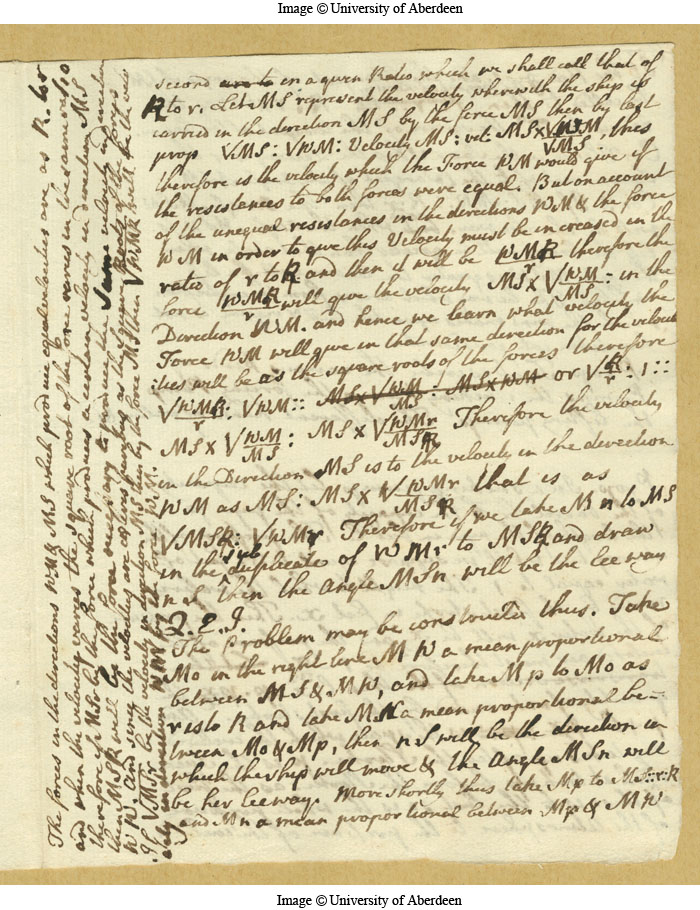 Image © University of Aberdeen
second are to in a given Ratio which we shall call that of
R to r. Let MS represent the velocity wherewith the ship is
carried in the direction MS by the force MS then by last
prop √MS : √WM : Velocity MS : vel: MS × √WM/√MS, this
therefore is the velocity which the Force WM would give if
the resistances to both forces were equal. But on account
of the unequal resistances in the directions WM & the force
WM in order to give this Velocity must be increased in the
ratio of r to R and then it will be WMR/r therefore the
force WMR/r will give the velocity MS × √WM/MS : in the
Direction WM. and hence we learn what velocity the
Force WM will give in that same direction for the veloci
:ties will be as the square roots of the forces therefore
√WMR/r : √WM :: MS × √WM/MS : MS × WM or √R/r : 1 ::
MS × √WM/MS : MS × √WMr/MSR Therefore the velocity
in the Direction MS is to the velocity in the direction
WM as MS : MS × √WMr/MSR that is as
√MSR : √WMr Therefore if we take Mn to MS
in the subduplicate of WMr to MSR and draw
nS then the Angle MSn will be the lee way
Q.E.I.
The Problem may be constructed thus. Take
Mo in the right line MW a mean proportional
between MS & MW, and take Mp to Mo as
r is to R and take Mn a mean proportional be-
tween Mo & Mp, then nS will be the direction in
which the ship will move & the Angle MSn will
be her lee way. More shortly thus take Mp to MS::r:R
and Mn a mean proportional between Mp & MW
The forces in the directions WM & MS which produce equal velocities are as R to r
and when the velocity varies the square root of the force varies in the same ratio
therefore if MS be the force which produces a certain velocity in direction MS
then MSR will be the force necessary to produce the same velocity in direction
WM. and since the velocities are as the square Roots of the forces
if √MSr be the velocity in direction MS then by the force MS then √WMR will be the velo
city in direction WM by the force WM.
Image © University of Aberdeen